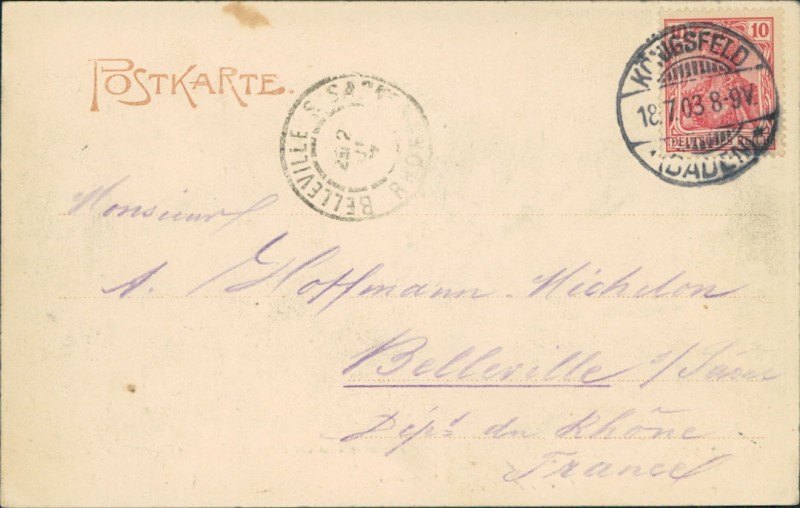 POSTKARTE.
10
KÖNIGSFELD
18.7.03 8-9V.
(BADEN) *
BELLEVILLE S. SAONE
RHONE
Monsieur
A. Hoffmann-Michelon
Belleville s/Saône
Dépt du Rhône
France